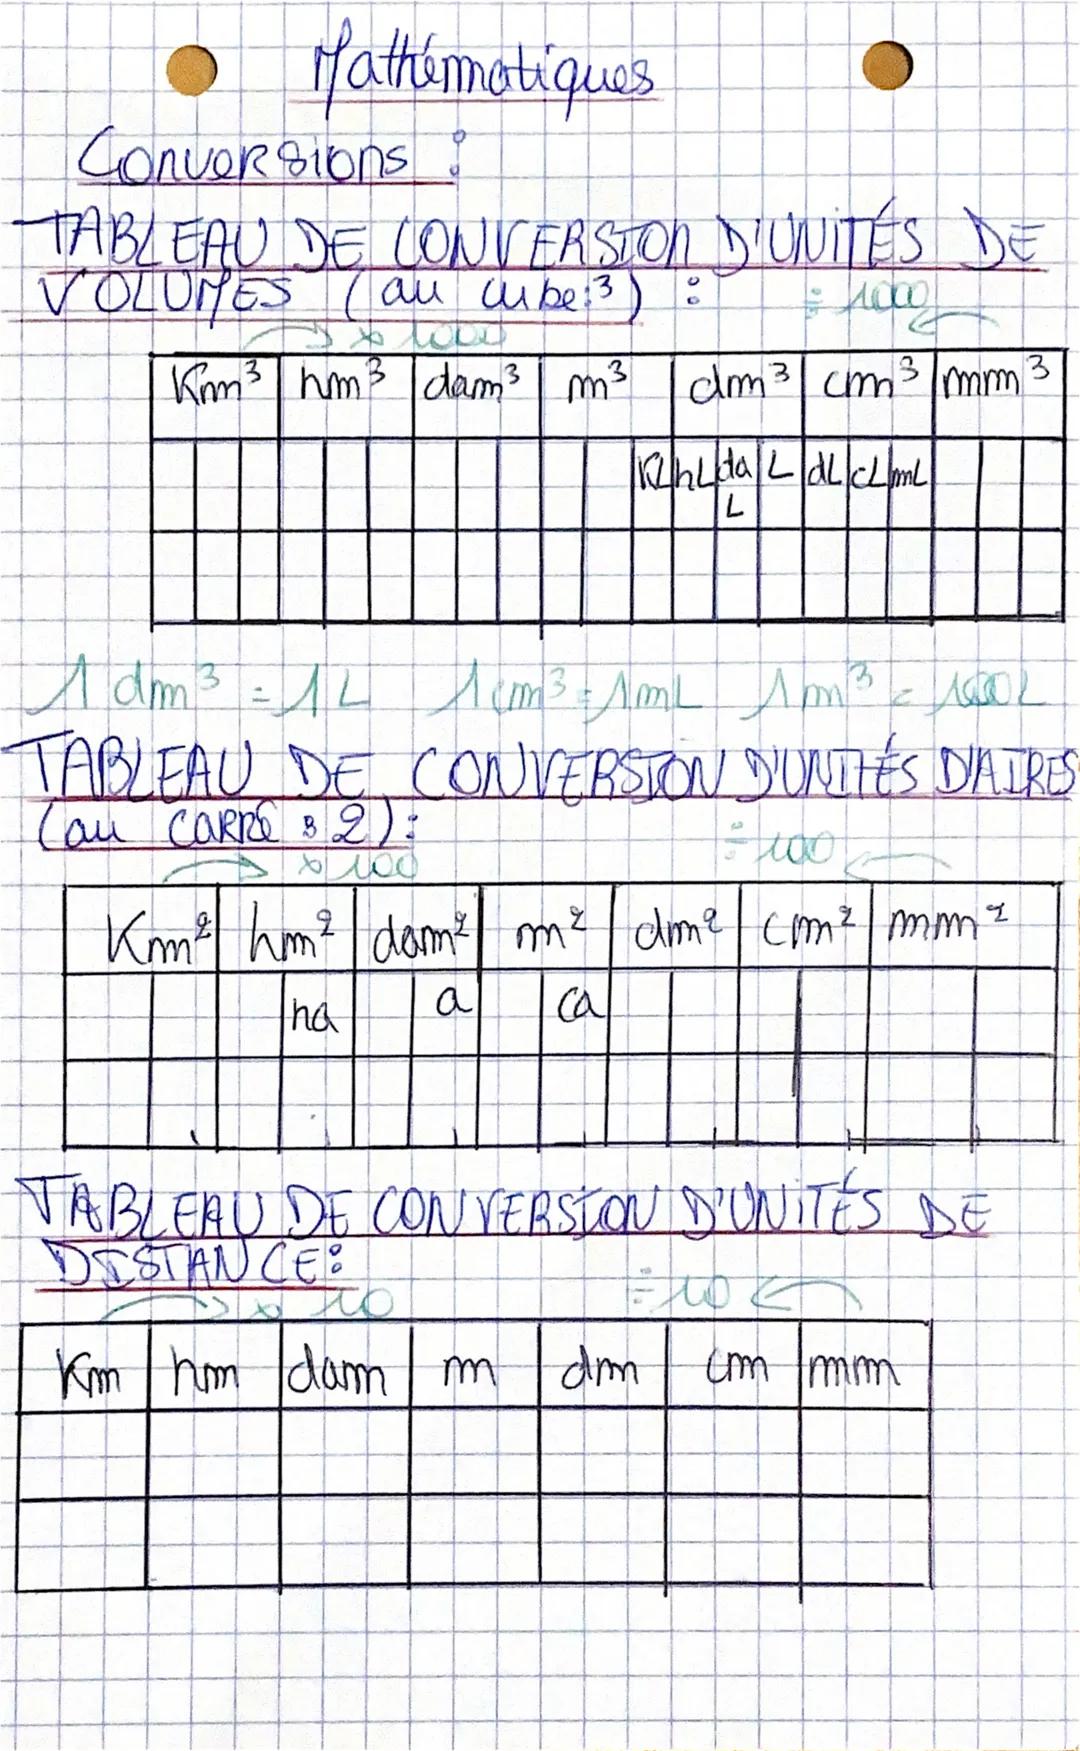 Mathématiques
Conversions :
TABLEAU DE CONVERSION D'UNITÉS DE
VOLUMES (au cube:3) : ÷ 1000
x 1000
Km³ hm³ dam³ m³ dm³ cm³ mm³
KL hL da L dL cL mL
L
1 dm³ = 1L 1cm³ = 1mL 1m³ = 1000L
TABLEAU DE CONVERSION D'UNITÉS D'AIRES
(au CARRÉ : 2) :
x 100 ÷ 100
Km² hm² dam² m² dm² cm² mm²
ha a ca
TABLEAU DE CONVERSION D'UNITÉS DE
DISTANCE :
x 10 ÷ 10
Km hm dam m dm cm mm